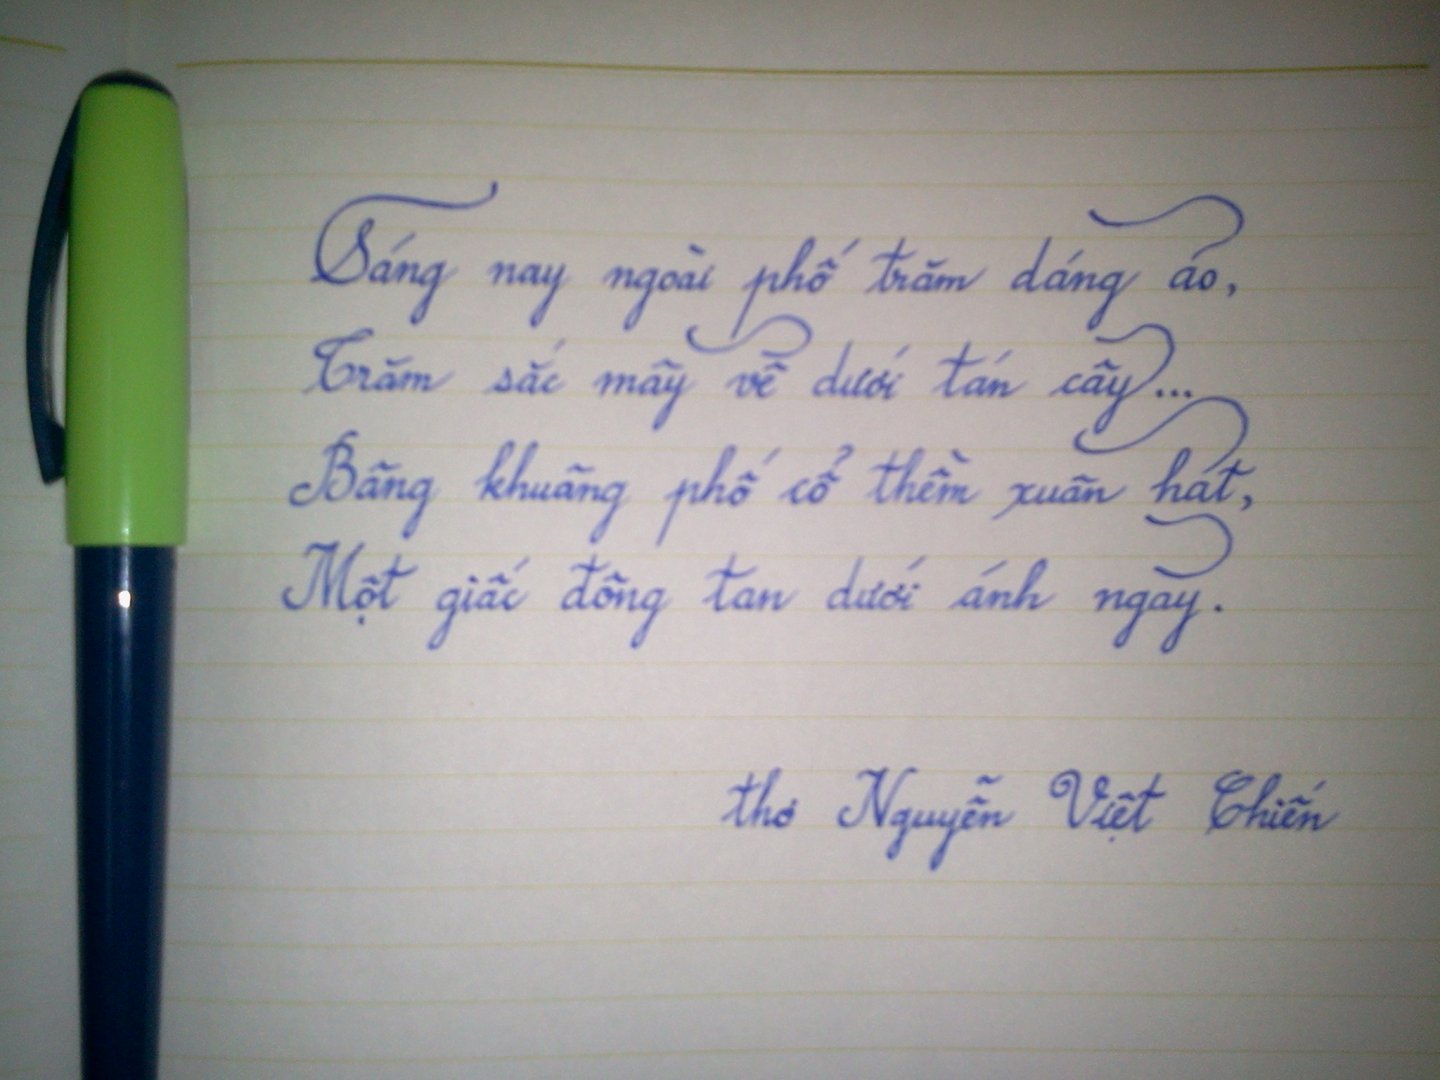 Sáng nay ngoài phố trăm dáng áo,
Trăm sắc mây về dưới tán cây...
Bâng khuâng phố cổ thềm xuân hát,
Một giấc đông tan dưới ánh ngày.
thơ Nguyễn Việt Chiến